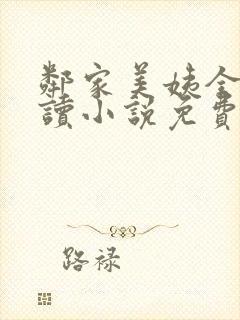 鄰家美姨全
讀小說免費
路祿